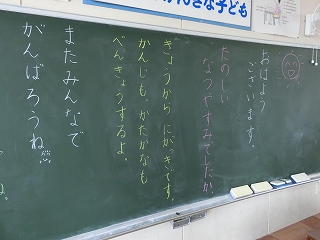 おはよう
ございます。
たのしい
なつやすみでしたか。
きょうから にがっきです。
かんじも、かたかなも
べんきょうするよ。
またみんなで
がんばろうね
ね。
んきな子ども